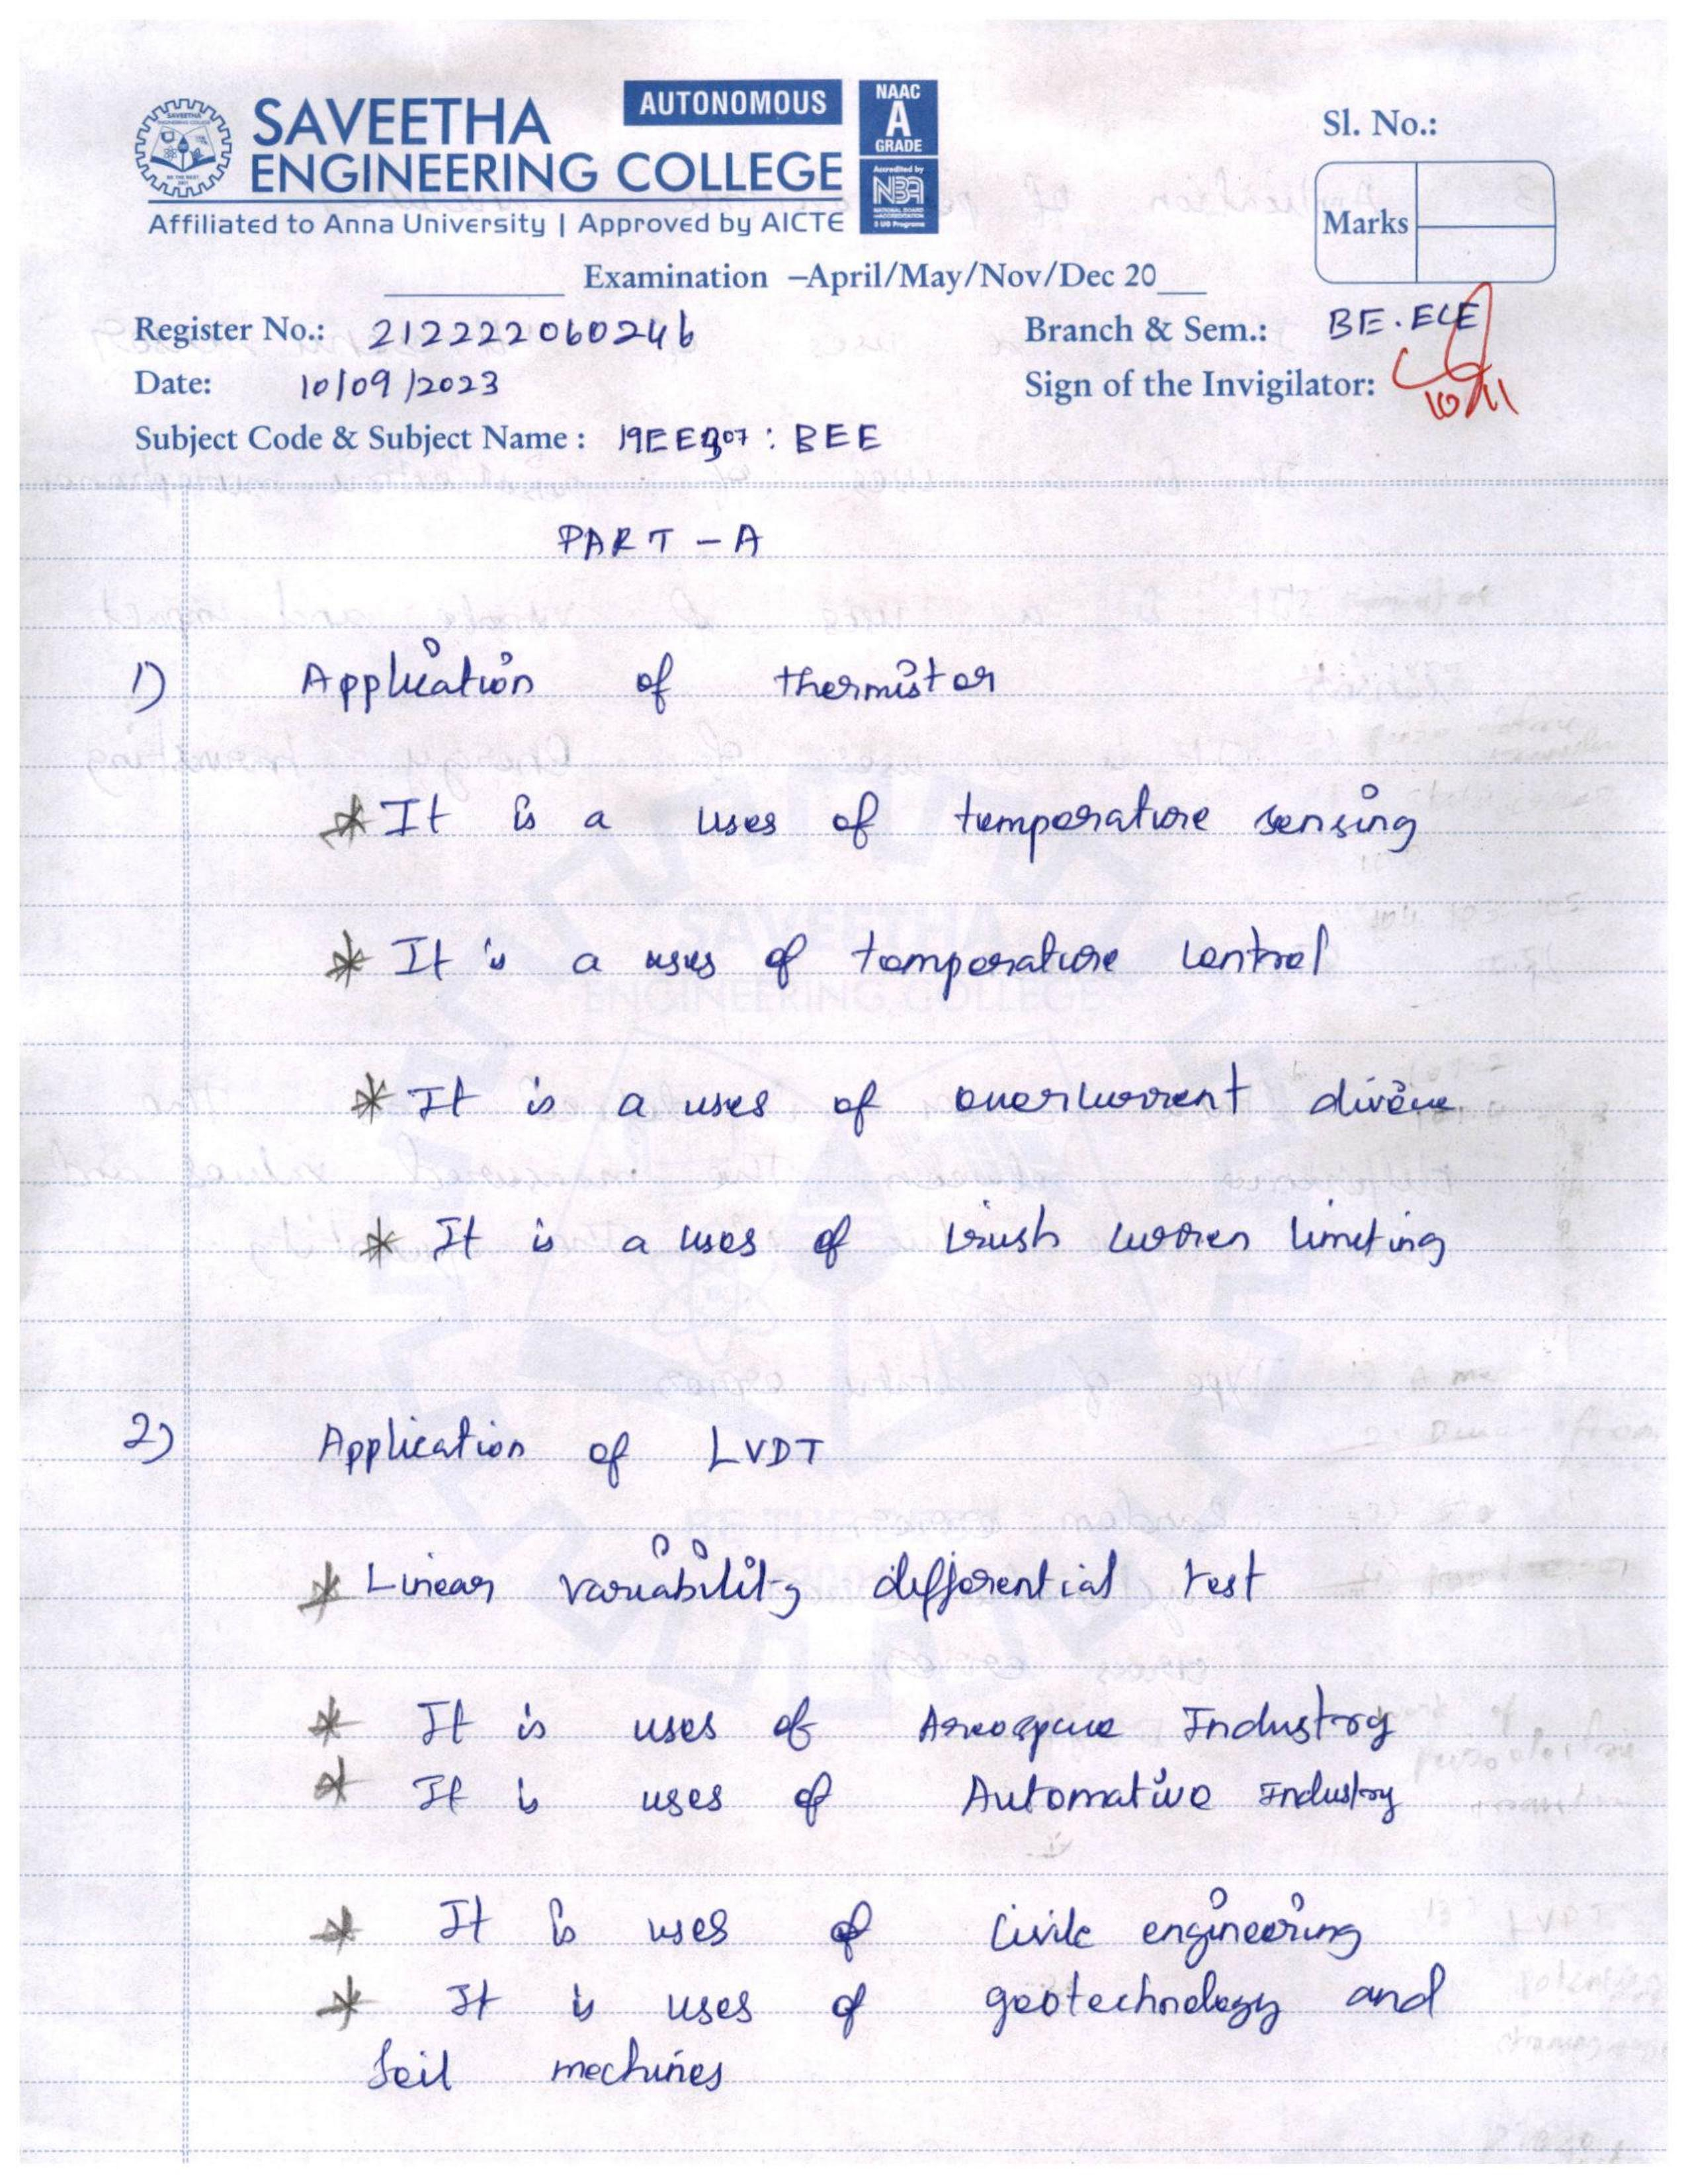 SAVEETHA
ENGINEERING COLLEGE
AUTONOMOUS
NAAC
A
GRADE
Accredited by
NBA
NATIONAL BOARD
of ACCREDITATION
Affiliated to Anna University | Approved by AICTE
Sl. No.:
Marks
Examination –April/May/Nov/Dec 20
Register No.: 212222060246
Branch & Sem.: BE.ECE
Date: 10/09/2023
Sign of the Invigilator:
Subject Code & Subject Name : 19EE307 : BEE
PART - A
1) Application of thermistor
* It is a uses of temperature sensing
* It is a uses of temperature control
* It is a uses of overcurrent
* It is a uses of limiting
2) Application of LVDT
* Linear variability differential test
* It is uses of Areospace Industry
* It is uses of Automative Industry
* It is uses of civile engineering
* It is uses of geotechnology and
Soil mechines